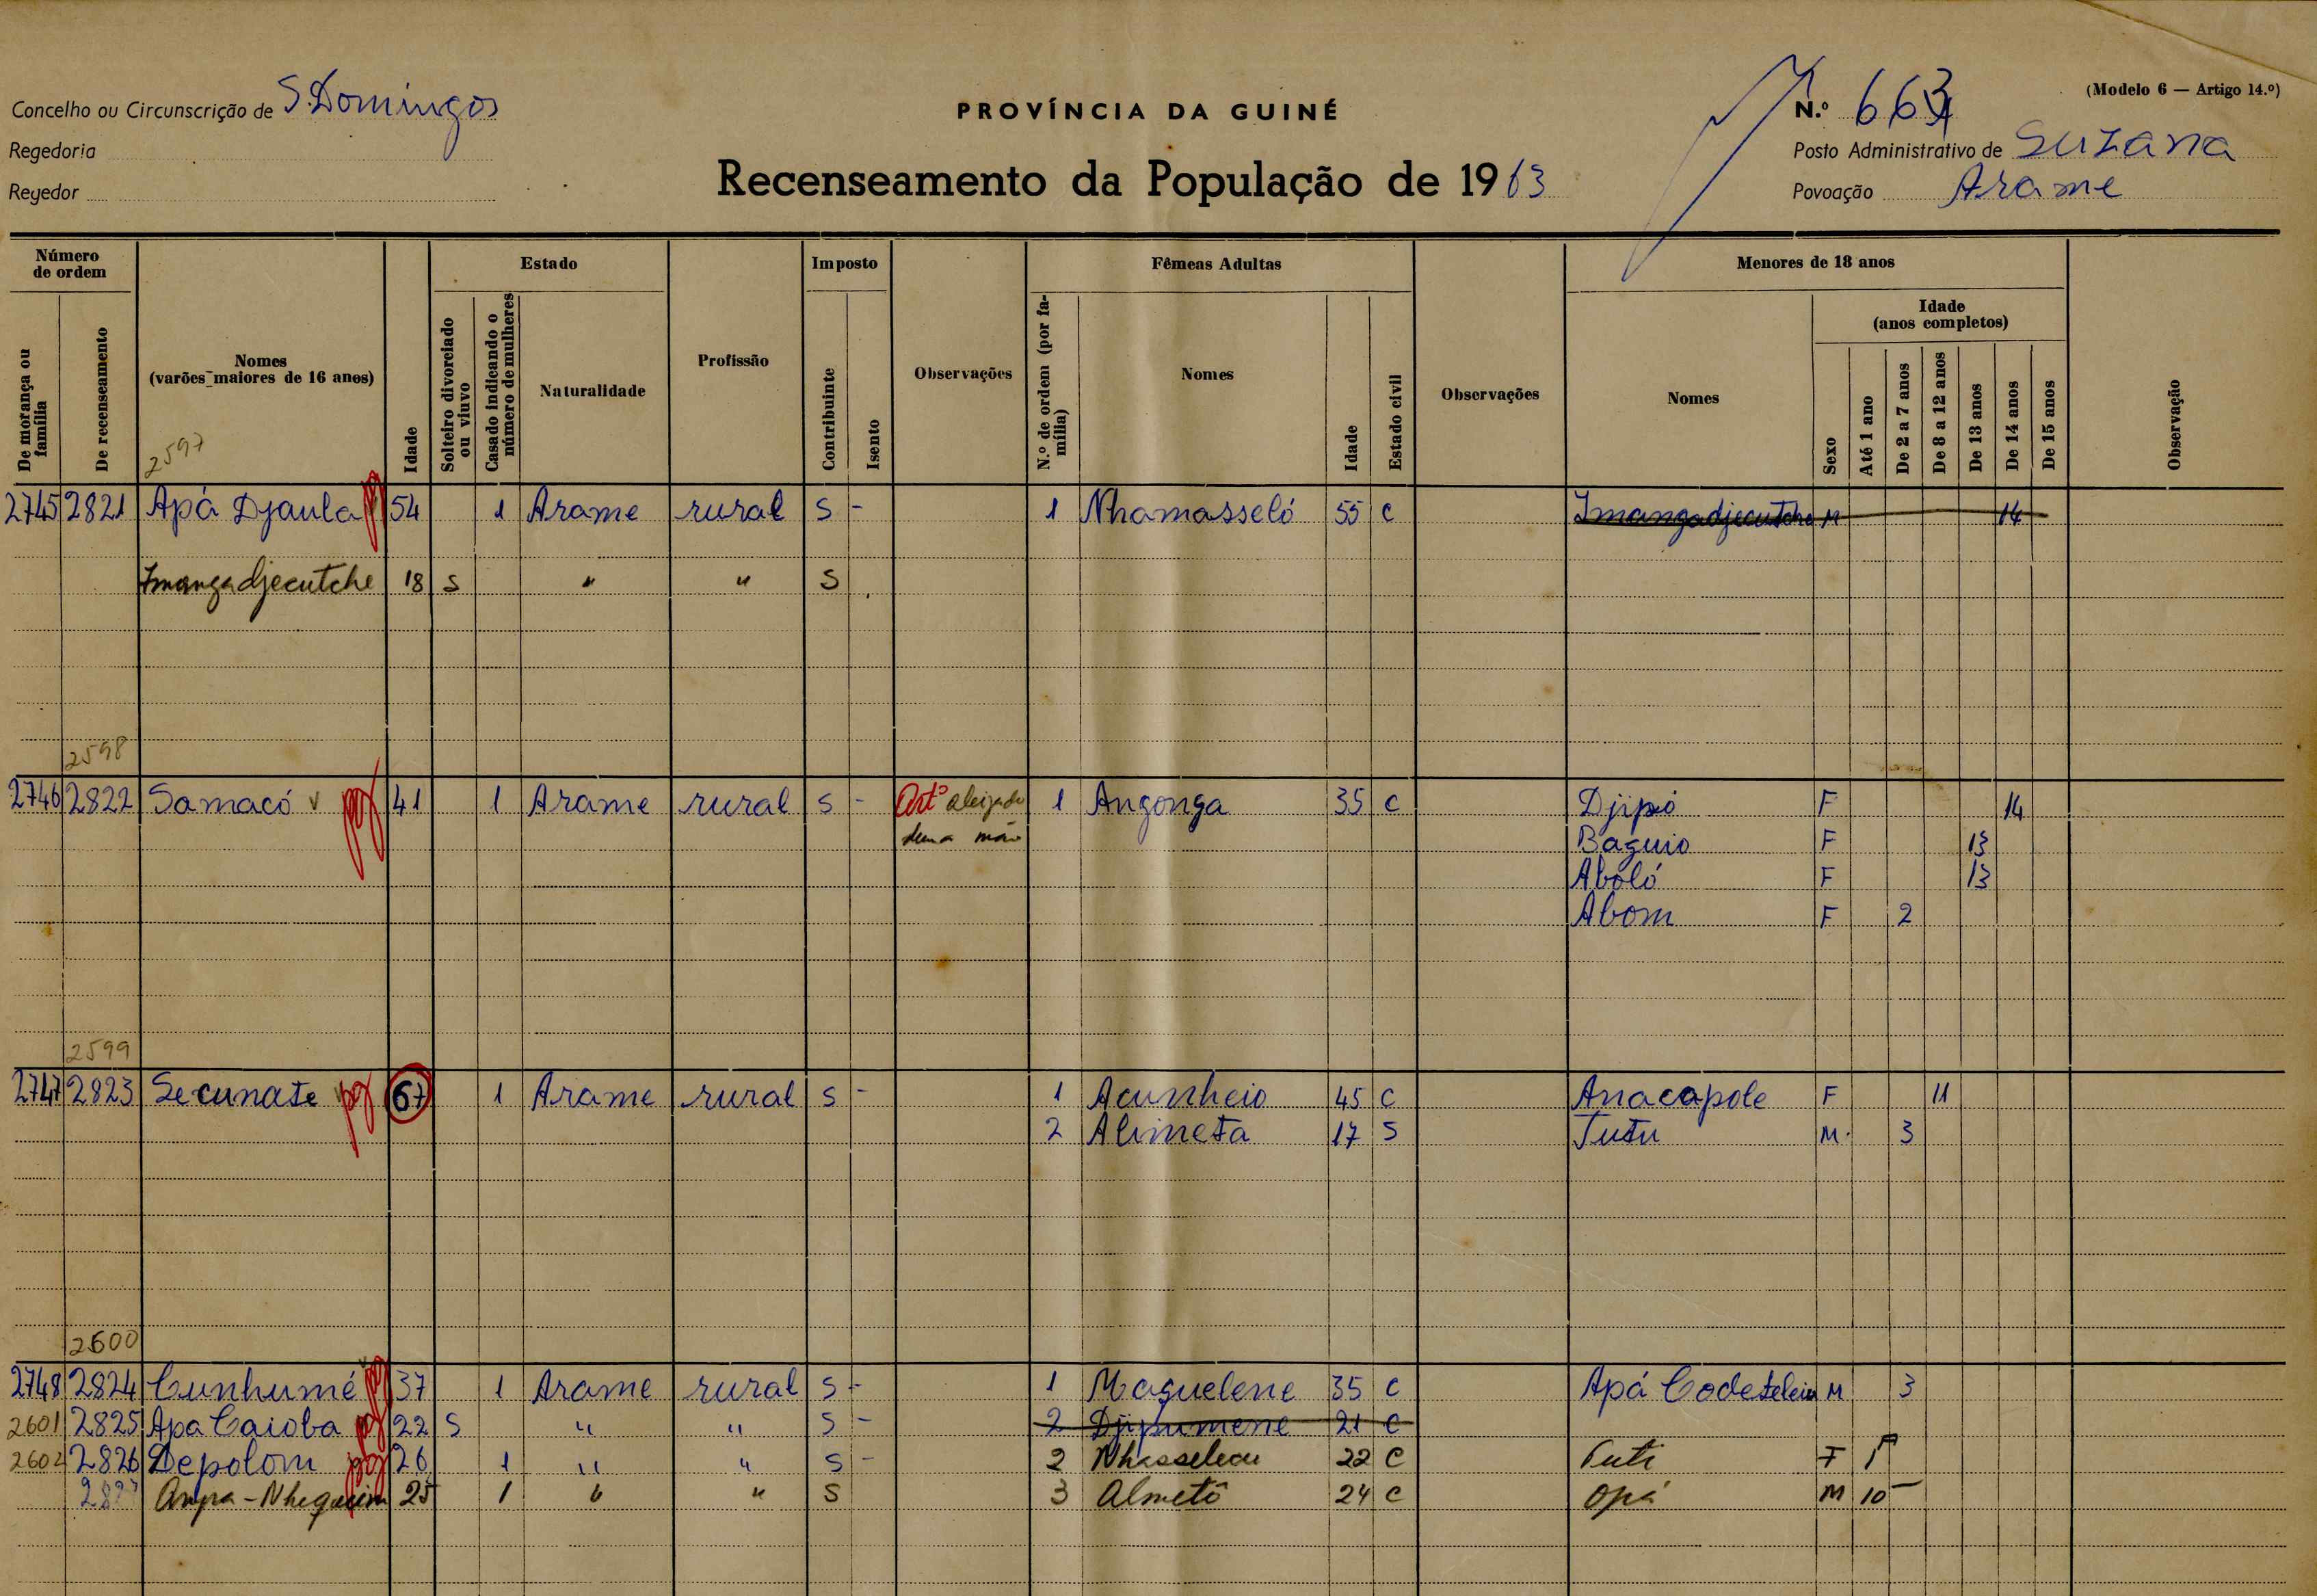 Concelho ou Circunscrição de S. Domingos
PROVÍNCIA DA GUINÉ
N.º 663
(Modelo 6 — Artigo 14.º)
Regedoria
Posto Administrativo de Suzana
Regedor
Recenseamento da População de 1963
Povoação Arame
Número de ordem
De morança ou família
De recenseamento
Nomes
(varões maiores de 16 anos)
Idade
Estado
Solteiro divorciado ou viuvo
Casado indicando o número de mulheres
Naturalidade
Profissão
Imposto
Contribuinte
Isento
Observações
Fêmeas Adultas
N.º de ordem (por família)
Nomes
Idade
Estado civil
Observações
Menores de 18 anos
Nomes
Sexo
Idade
(anos completos)
Até 1 ano
De 2 a 7 anos
De 8 a 12 anos
De 13 anos
De 14 anos
De 15 anos
Observação
2597
2745 2821 Apá Djaula 54 1 Arame rural S - 1 Nhamasseló 55 C Imangadjecutche M 14
Imangadjecutche 18 S " " S
2598
2746 2822 Samacó v pg 41 1 Arame rural S - Artº aleijado 1 Angonga 35 C Djipó F 14
duma mão Baguio F 13
Aboló F 13
Abom F 2
2599
2747 2823 Secunate pg 67 1 Arame rural S - 1 Acunheio 45 C Anacapole F 11
2 Alimeta 17 S Tutu M. 3
2600
2748 2824 Cunhumé pg 37 1 Arame rural S - 1 Maguelene 35 C Apá Codetelein M 3
2601 2825 Apa Caioba pg 22 S " " S - 2 Djipumene 21 C
2602 2826 Depolom pg 26 1 " " S - 2 Nhasselecu 22 C Tuti F 1
Anpa-Nhequim 25 1 " " S 3 Almetô 24 C Opá M 10